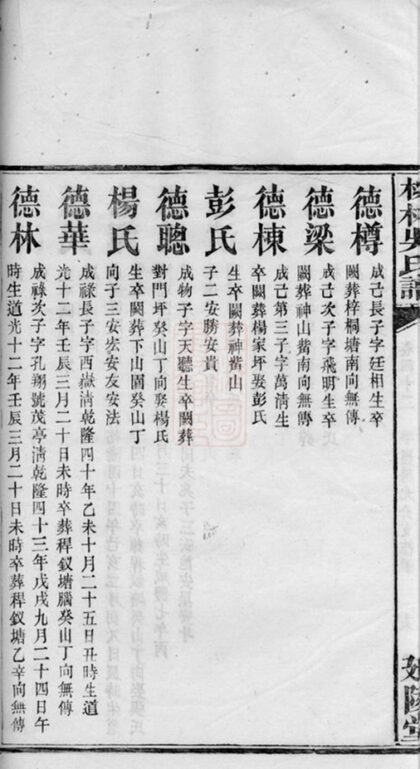 德樽
成己長子字廷相生卒
闕葬梓桐塘南向無傳
德梁
成己次子字飛明生卒
闕葬神山觜南向無傳
德棟
成己第三子字萬清生
卒闕葬楊家坪娶彭氏
彭氏
生卒闕葬神觜山
子二安勝安貴
德聰
成物子字天聽生卒闕葬
對門坪癸山丁向娶楊氏
楊氏
生卒闕葬下山園癸山丁
向子三安宏安友安法
德華
成祿長子字西嶽清乾隆四十年乙未十月二十五日丑時生道
光十二年壬辰三月二十日未時卒葬稈釵塘腦癸山丁向無傳
德林
成祿次子字孔翔號茂亭清乾隆四十三年戊戌九月二十四日午
時生道光十二年壬辰三月二十日未時卒葬稈釵塘乙辛向無傳